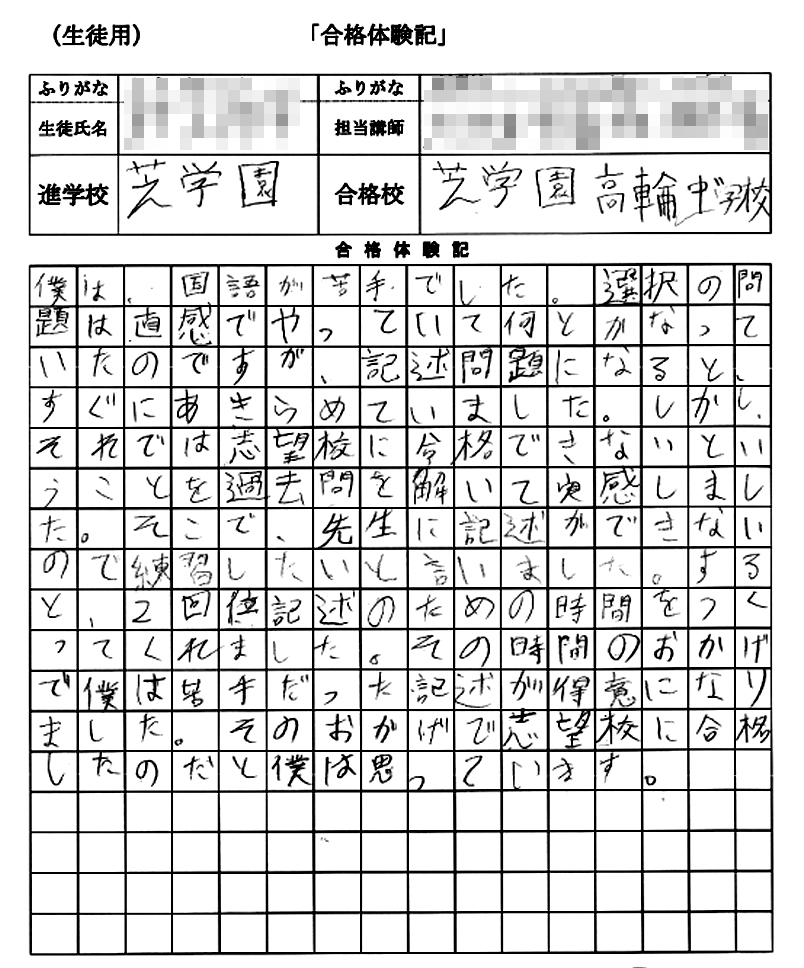 (生徒用) 「合格体験記」
ふりがな ふりがな
生徒氏名 担当講師
進学校 芝学園 合格校 芝学園 高輪中学校
合格体験記
僕は、国語が苦手でした。選択の問
題は直感でやっていて何とかなって
いたのですが、記述問題になると、
すぐにあきらめていました。しかし、
それでは志望校に合格できないとい
うことを過去問を解いて実感しまし
た。そこで、先生に記述ができない
ので練習したいと言いました。する
と、2回位記述のための時間をつく
ってくれました。その時間のおかげ
で僕は苦手だった記述が得意になり
ました。そのおかげで志望校に合格
したのだと僕は思っています。